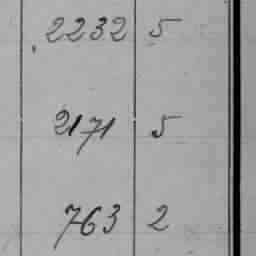 2232 5
2171 5
763 2